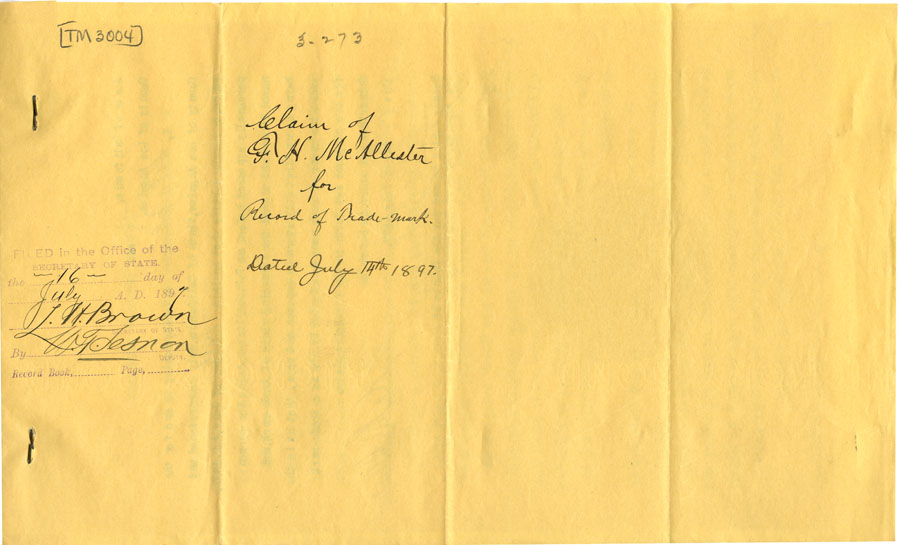 TM 3004
3-273
Claim of
F. H. McAllister
for
Record of Trade-mark.
Dated July 14th 1897.
FILED in the Office of the
SECRETARY OF STATE.
the -16- day of
July A. D. 1897.
L. H. Brown
SECRETARY OF STATE.
By
DEPUTY.
Record Book, Page,